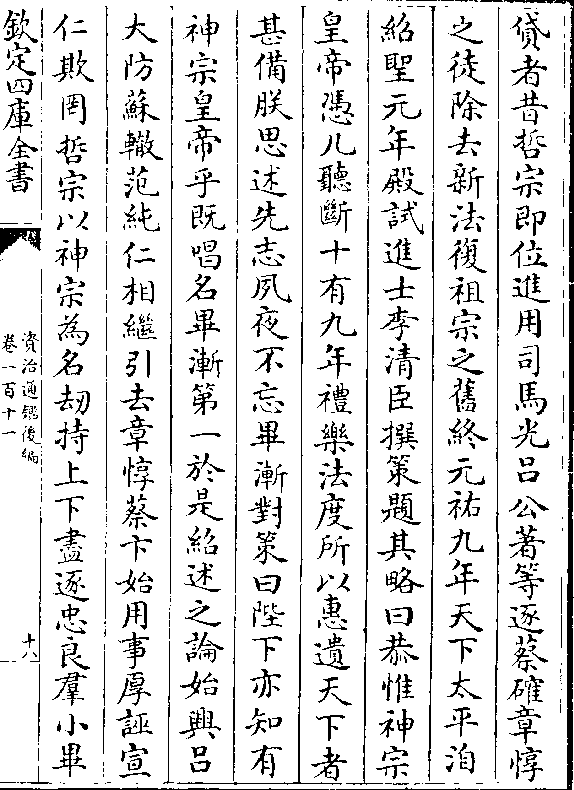 貸者昔哲宗即位進用司馬光吕公著等逐蔡確章惇
之徒除去新法復祖宗之舊終元祐九年天下太平洎
紹聖元年殿試進士李清臣撰策題其略曰恭惟神宗
皇帝憑几聽斷十有九年禮樂法度所以惠遺天下者
甚備朕思述先志夙夜不忘畢漸對策曰陛下亦知有
神宗皇帝乎既唱名畢漸第一於是紹述之論始興吕
大防蘇轍范純仁相繼引去章惇蔡卞始用事厚誣宣
仁欺罔哲宗以神宗為名刼持上下盡逐忠良羣小畢
欽定四庫全書
資治通鑑後編
卷一百十一
十八